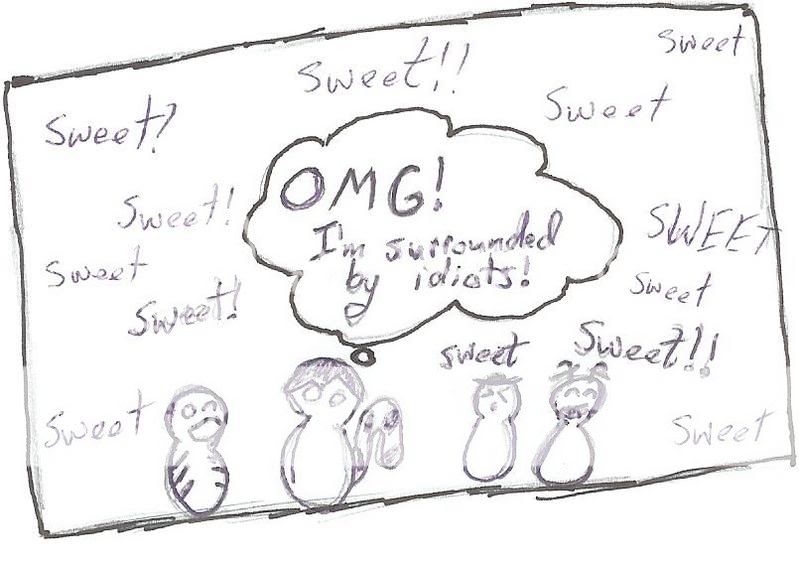 sweet
Sweet!!
Sweet
Sweet?
OMG!
I'm surrounded
by idiots!
Sweet!
SWEET
Sweet
Sweet
Sweet!
sweet
Sweet!!
Sweet
Sweet